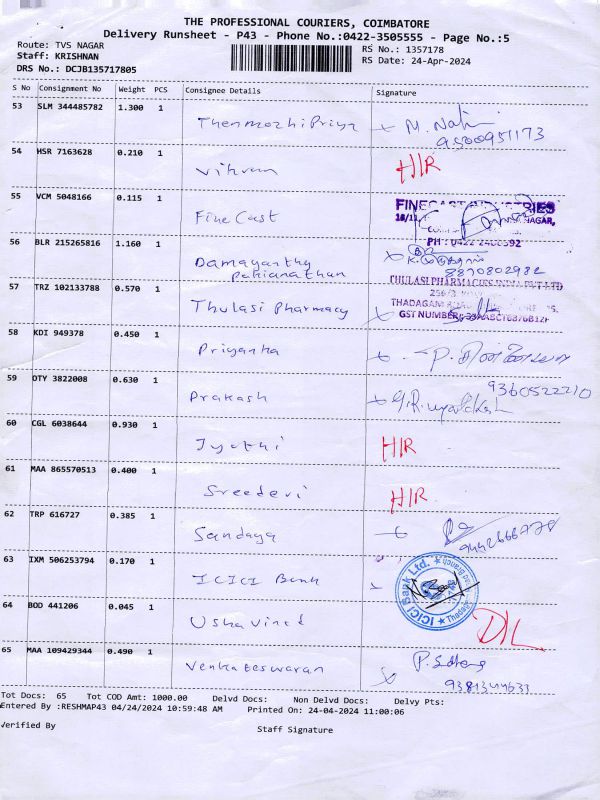 THE PROFESSIONAL COURIERS, COIMBATORE
Delivery Runsheet - P43 - Phone No.:0422-3505555 - Page No.:5
Route: TVS NAGAR
RS No.: 1357178
Staff: KRISHNAN
RS Date: 24-Apr-2024
DRS No.: DCJB135717805
S No Consignment No Weight PCS Consignee Details Signature
53 SLM 344485782 1.300 1
Thenmozhi Priya M. Nati
9500951173
54 HSR 7163628 0.210 1
HIR
55 VCM 5048166 0.115 1
Fine Cast
FINECAST INDUSTRIES
NAGAR,
PH : 0422 2400392
56 BLR 215265816 1.160 1
Damayanthy
8870802982
57 TRZ 102133788 0.570 1
Thulasi Pharmacy
THULASI PHARMACIES INDIA PVT LTD
THADAGAM
GST NUMBER
58 KDI 949378 0.450 1
Priyanka
59 OTY 3822008 0.630 1
Prakash
9360522210
60 CGL 6038644 0.930 1
Jyothi HIR
61 MAA 865570513 0.400 1
Sreedevi HIR
62 TRP 616727 0.385 1
Sandaya
63 IXM 506253794 0.170 1
ICICI Bank
ICICI Bank Ltd.
64 BOD 441206 0.045 1
Usha Vined D/L
65 MAA 109429344 0.490 1
Venkateswaran
Tot Docs: 65 Tot COD Amt: 1000.00 Delvd Docs: Non Delvd Docs: Delvy Pts:
Entered By :RESHMAP43 04/24/2024 10:59:48 AM Printed On: 24-04-2024 11:00:06
Verified By
Staff Signature